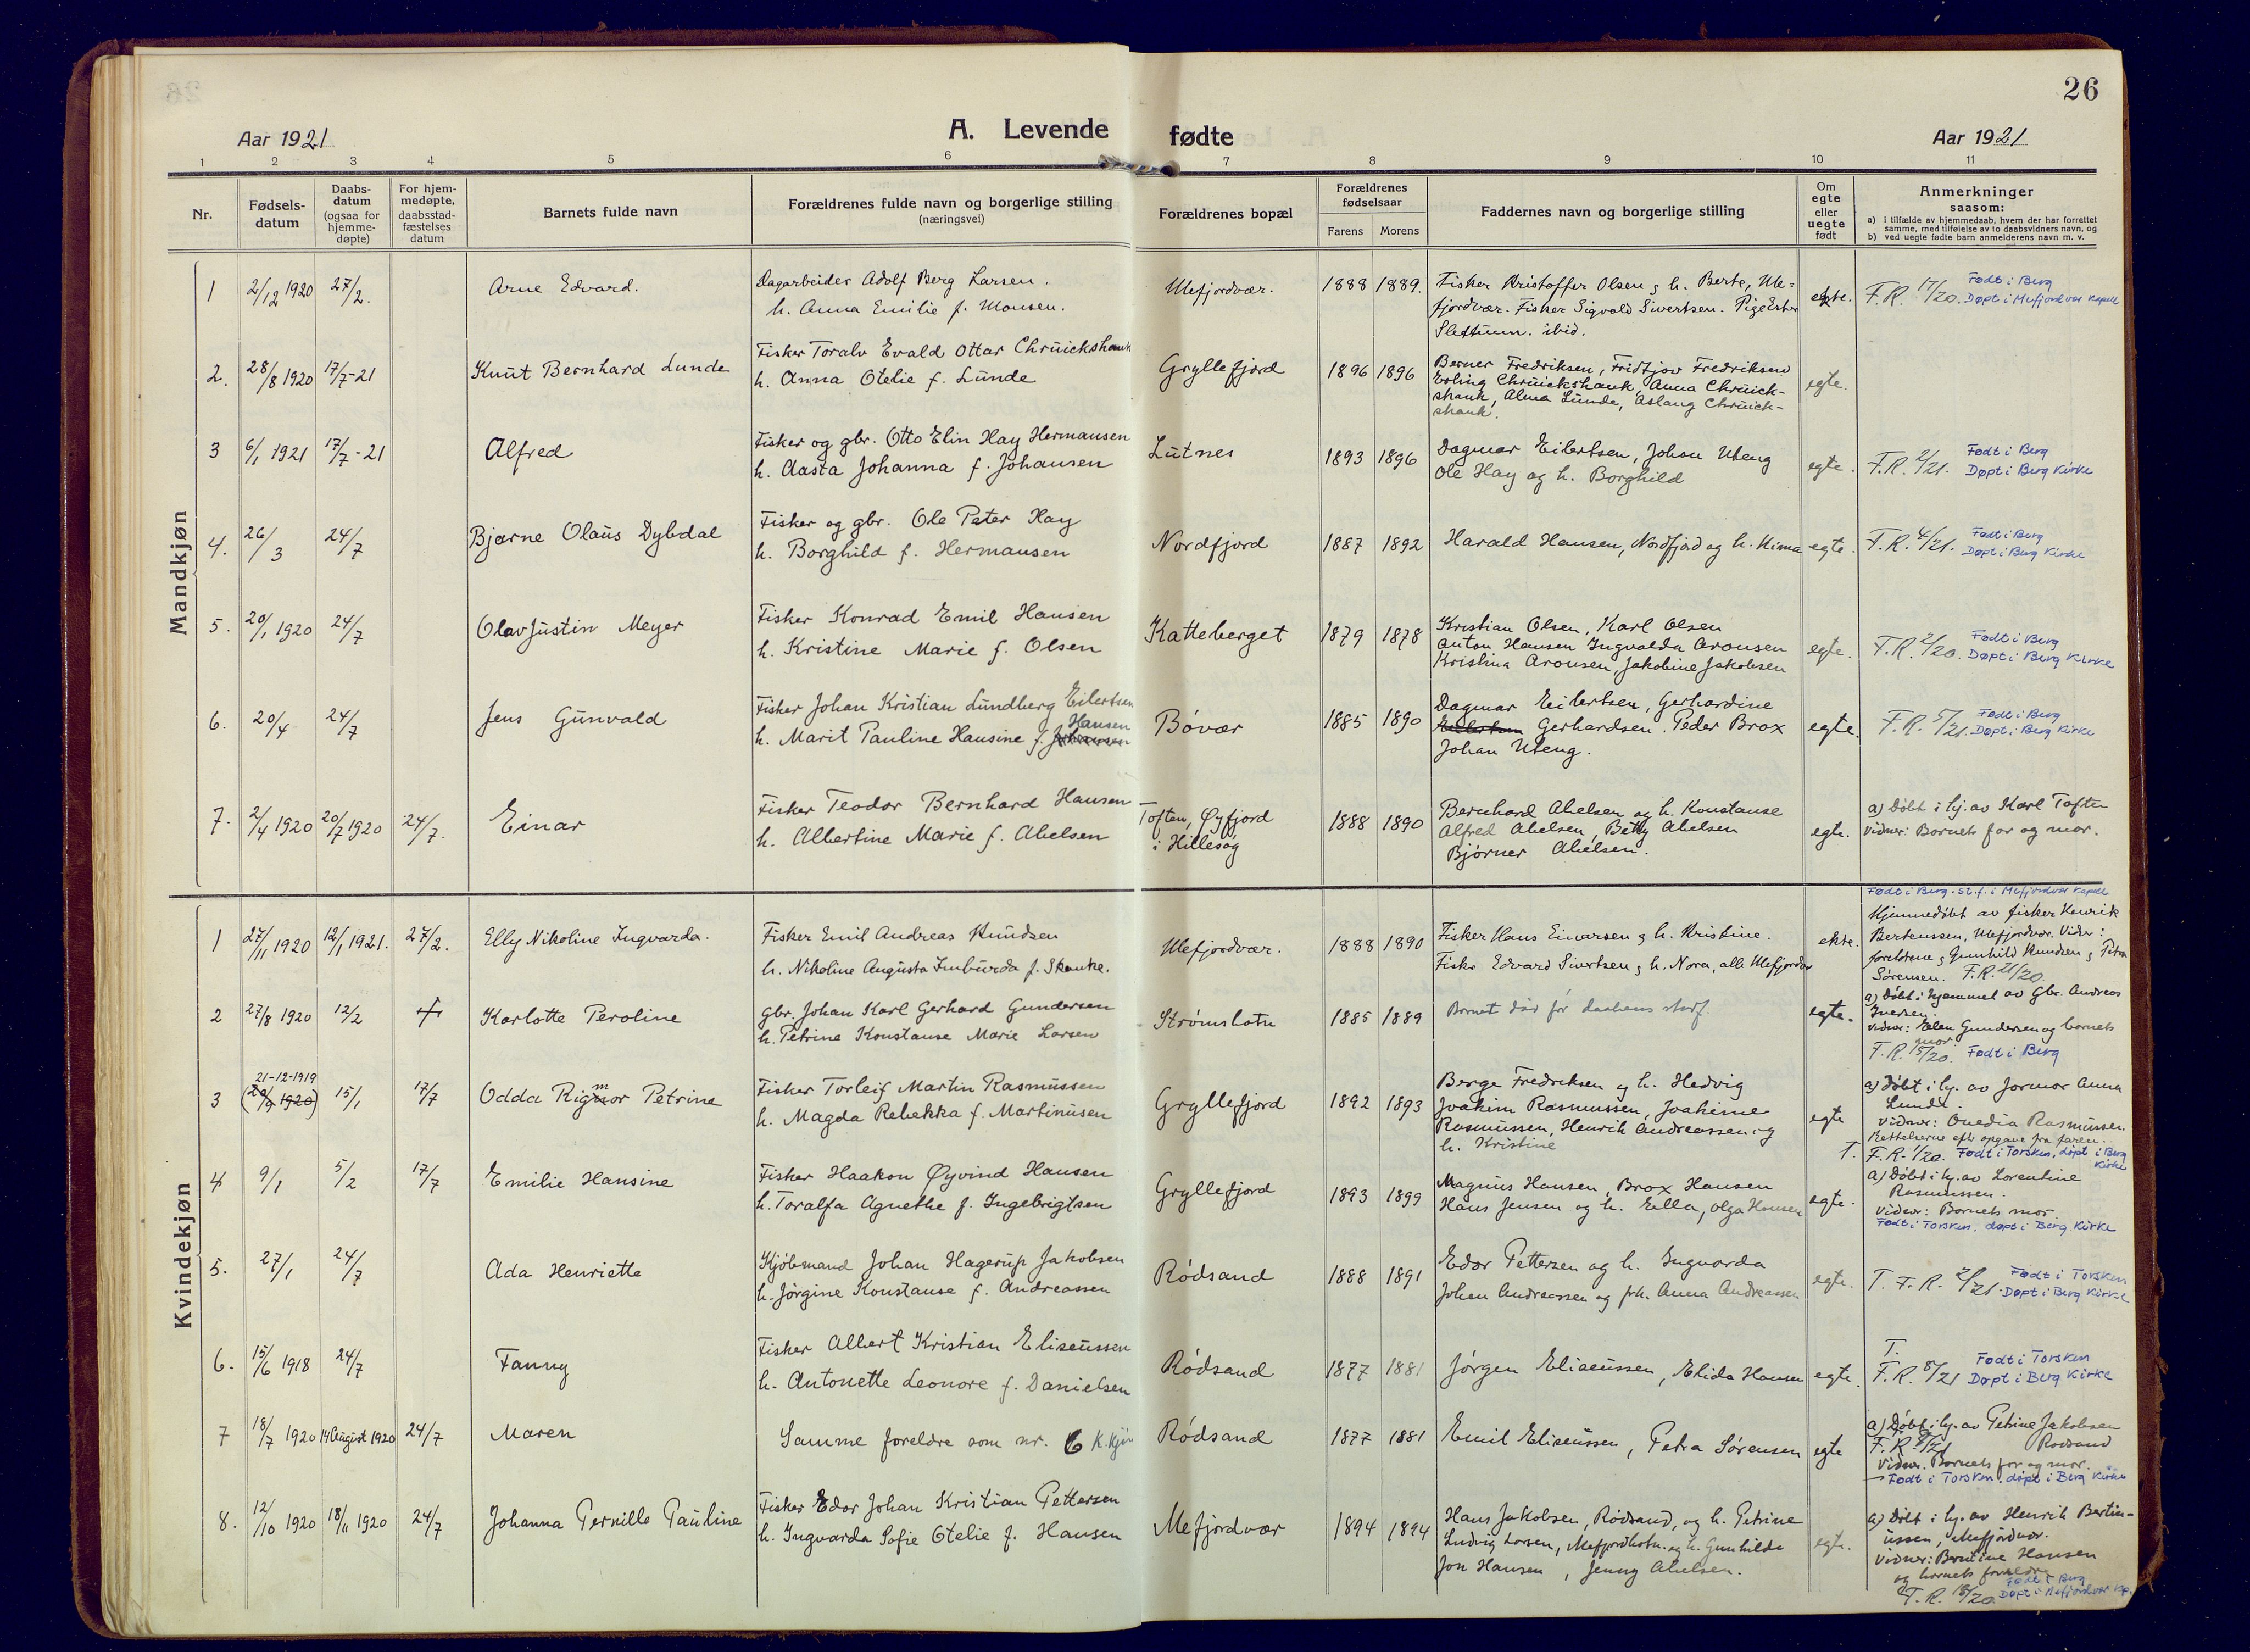 26
Aar 1921
A. Levende fødte
Aar 1921
1 2 3 4 5 6 7 8 9 10 11
Nr.
Fødsels-
datum
Daabs-
datum
(ogsaa for
hjemme-
døpte)
For hjem-
medøpte,
daabsstad-
fæstelses
datum
Barnets fulde navn
Forældrenes fulde navn og borgerlige stilling
(næringsvei)
Forældrenes bopæl
Forældrenes
fødselsaar
Farens Morens
Faddernes navn og borgerlige stilling
Om
egte
eller
uegte
født
Anmerkninger
saasom:
a) i tilfælde av hjemmedaab, hvem der har forrettet
samme, med tilføielse av to daabsvidners navn, og
b) ved uegte fødte barn anmelderens navn m. v.
Mandkjøn
1 2/12 1920 27/2. Arne Edvard.
Dagarbeider Adolf Berg Larsen.
h. Anna Emilie f. Monsen.
Mefjordvær. 1888 1889.
Fisker Kristoffer Olsen g h. Berte, Me-
fjordvær. Fisker Sigvald Sivertsen. Pige Ester
Slettum. ibid.
ekte.
F.R. 17/20. Født i Berg
Døpt i Mefjordvær Kapell
2. 28/8 1920 17/7-21 Knut Bernhard Lunde
Fisker Toralv Evald Ottar Chruickshank
h. Anna Otelie f. Lunde
Gryllefjord 1896 1896
Berner Fredriksen, Fridtjov Fredriksen
Erling Chruickshank, Anna Chruick-
shank, Alma Lunde, Aslaug Chruick-
shank.
egte.
3 6/1 1921 17/7-21 Alfred
Fisker og gbr. Otto Elin Hay Hermansen
h. Aasta Johanna f. Johansen
Lutnes 1893 1896
Dagmar Eilertsen, Johan Uteng
Ole Hay og h. Borghild
egte.
F.R. 2/21. Født i Berg
Døpt i Berg Kirke
4. 26/3 24/7 Bjarne Olaus Dybdal
Fisker og gbr. Ole Peter Hay
h. Borghild f. Hermansen
Nordfjord 1887 1892
Harald Hansen, Nordfjord og h. Minna
egte.
F.R. 4/21. Født i Berg
Døpt i Berg Kirke
5. 20/1 1920 24/7 Olav Justin Meyer
Fisker Konrad Emil Hansen
h. Kristine Marie f. Olsen
Katteberget 1879 1878
Kristian Olsen, Karl Olsen
Anton Hansen, Ingvalda Aronsen
Kristina Aronsen, Jakobine Jakobsen
egte.
F.R. 2/20. Født i Berg
Døpt i Berg Kirke
6. 20/4 24/7 Jens Gunvald
Fisker Johan Kristian Lundberg Eilertsen
Hansen
h. Marit Pauline Hansine f. Johansen
Bövær 1885 1890
Dagmar Eilertsen, Gerhardine
Eilertsen Gerhardsen. Peder Brox
Johan Uteng.
egte.
F.R. 5/21. Født i Berg
Døpt i Berg Kirke
7. 2/4 1920 20/7 1920 24/7. Einar
Fisker Teodor Bernhard Hansen
h. Albertine Marie f. Abelsen
Toften, Øyfjord
i Hillesøy
1888 1890
Bernhard Abelsen og h. Konstanse
Alfred Abelsen, Betty Abelsen
Bjørner Abelsen.
egte.
a) Döbt i hj. av Karl Toften
vidner: Barnets far og mor.
Kvindekjøn
Født i Berg. st.f. i Mefjordvær Kapell
1 27/11 1920 12/1 1921. 27/2. Elly Nikoline Ingvarda.
Fisker Emil Andreas Knudsen
h. Nikoline Augusta Imburda f. Skanke.
Mefjordvær. 1888 1890
Fisker Hans Einarsen g h. Kristine.
Fisker Edvard Sivertsen g h. Nora, alle Mefjordvær
ekte.
Hjemmedöbt av fisker Henrik
Bertenssen, Mefjordvær. Vidner:
foreldrene g Gunhild Knudsen g Petra
Sörensen. F.R. 21/20
2 27/8 1920 12/2 + Karlotte Peroline
gbr. Johan Karl Gerhard Gundersen
h. Petrine Konstanse Marie Larsen
Strömsbotn 1885 1889
Barnet död för daabens stadf.
egte.
a) Döbt i hjemmet av Gbr. Andreas
Iversen.
vidner: Ellen Gundersen og barnets
mor.
F.R. 15/20. Født i Berg
21-12-1919
3 (20/9 1920) 15/1 17/7 Odda Rigmor Petrine
Fisker Torleif Martin Rasmussen
h. Magda Rebekka f. Martinusen
Gryllefjord 1892 1893
Berge Fredriksen og h. Hedvig
Joakim Rasmussen, Joakime
Rasmussen, Henrik Andreassen og
h. Kristine
egte
a) Döbt i hj. av jormor Anna
Lunde.
vidner: Ovedia Rasmussen.
Rettelserne efter opgave fra faren.
T. F.R. 1/20. Født i Torsken, døpt i Berg
Kirke
4 9/1 5/2 17/7 Emilie Hansine
Fisker Haakon Øyvind Hansen
h. Toralfa Agnethe f. Ingebrigtsen
Gryllefjord 1893 1899
Magnus Hansen, Brox Hansen
Hans Jensen og h. Ella, Olga Hansen
egte.
a) Döbt i hj. av Lorentine
Rasmussen.
vidner: Barnets mor.
Født i Torsken, døpt i Berg Kirke
5. 27/1 24/7 Ada Henriette
Kjöbmand Johan Hagerup Jakobsen
h. Jörgine Konstanse f. Andreassen
Rödsand 1888 1891
Edor Pettersen og h. Ingvarda
Johan Andreassen og frk. Anna Andreassen
egte.
T. F.R. 2/21. Født i Torsken
Døpt i Berg Kirke
6. 15/6 1918 24/7 Fanny
Fisker Albert Kristian Eliseussen
h. Antonette Leonore f. Danielsen
Rödsand 1877 1881
Jörgen Eliseussen, Elida Hansen
egte.
T.
F.R. 8/21 Født i Torsken
Døpt i Berg Kirke
7 18/7 1920 14 August 1920 24/7 Maren
Samme foreldre som nr. 6 K.kjön
Rödsand 1877 1881
Emil Eliseussen, Petra Sörensen
egte
a) Döbt i hj. av Petrine Jakobsen
F.R. Rödsand
vidner. Barnets far og mor.
Født i Torsken, døpt i Berg Kirke
8. 12/10 1920 18/11 1920 24/7 Johanna Pernille Pauline
Fisker Edor Johan Kristian Pettersen
h. Ingvarda Sofie Otelie f. Hansen
Mefjordvær 1894 1894
Hans Jakobsen, Rödsand, og h. Petrine
Ludvig Larsen, Mefjordbotn. og h. Gunhilda
Jon Hansen, Jenny Abelsen.
egte.
a) Döbt i hj. av Henrik Bertin-
ussen, Mefjordvær.
vidner: Berntine Hansen
og barnets foreldre
F.R. 18/20. Født i Berg
Døpt i Mefjordvær Kp.